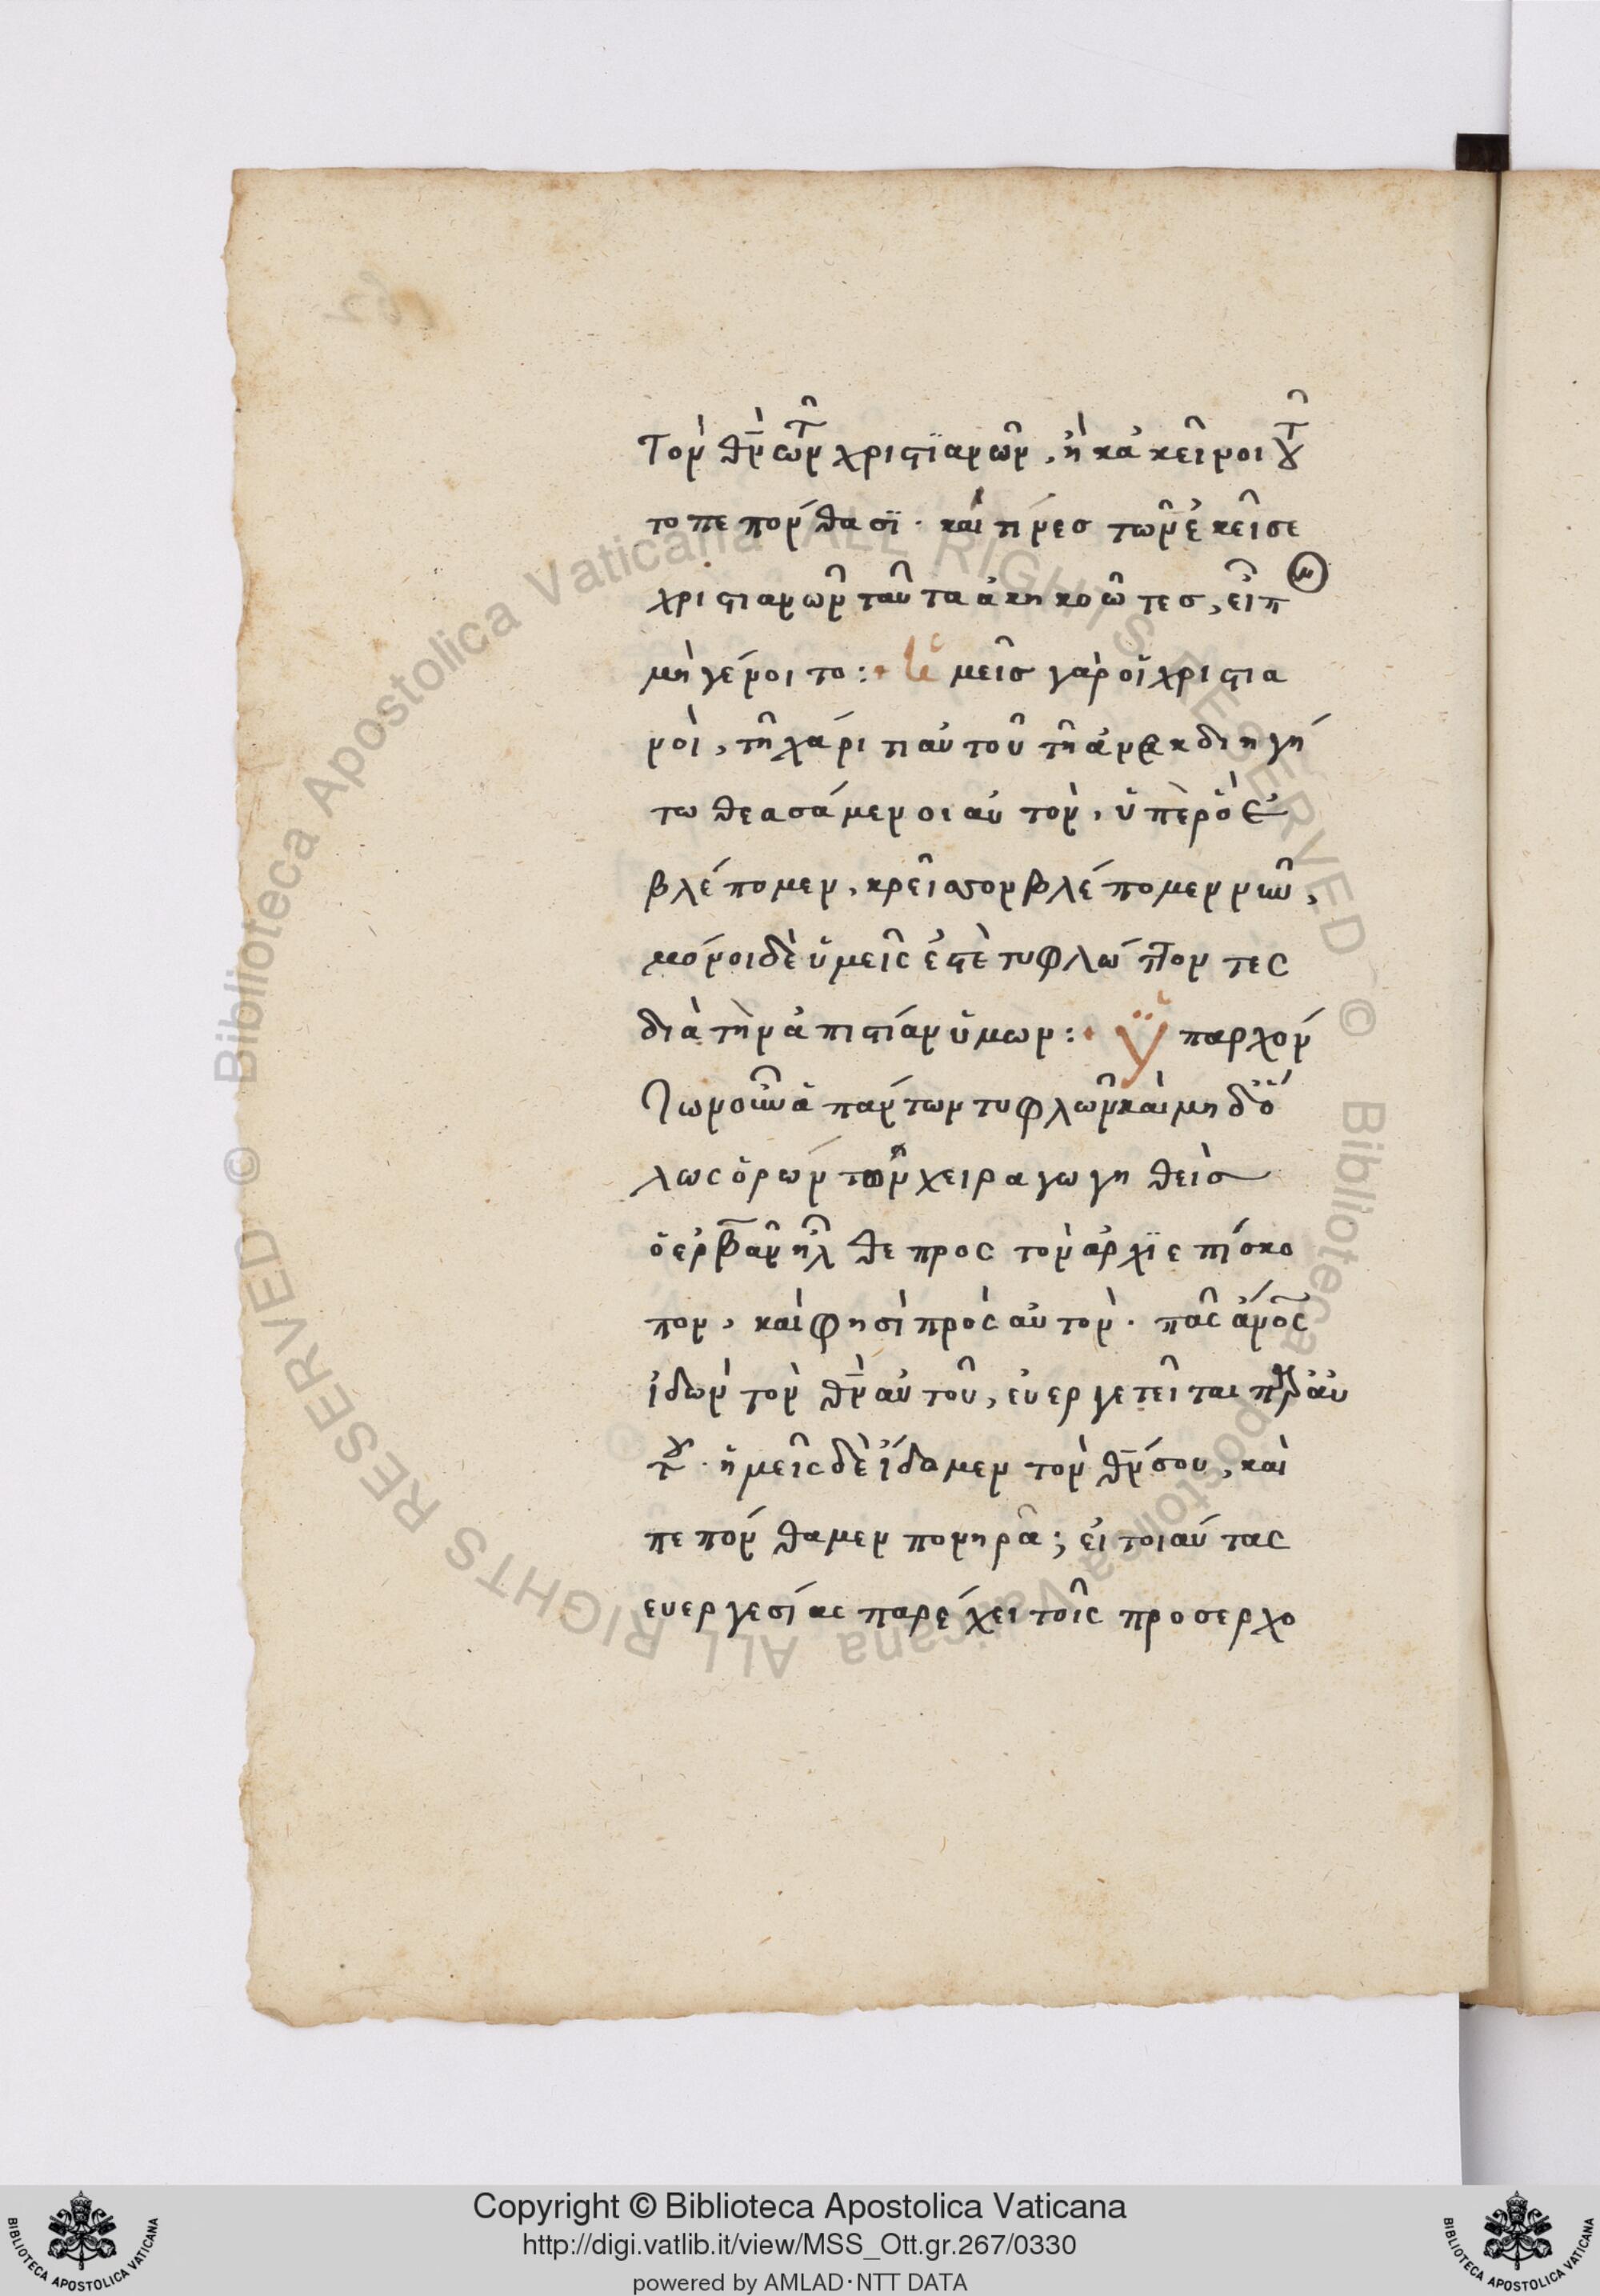 τὸν θν̅ τῶν χριστϊανῶν, ἢ κἀκεῖνοι τοῦ
το πεπόνθασϊ· καί τινες τῶν ἐκεῖσε
χριστιανῶν ταῦτα ἀκηκοῶτες, εἶπον
μὴ γένοιτο:+ Ἡμεῖς γὰρ οἱ χριστια
νοὶ, τῆ χάριτι αὐτοῦ τῆ ἀνεκδιηγή
τω θεασάμενοι αὐτὸν, ὑπὲρ ὃ
βλέπομεν, κρεῖασον βλέπομεν νῦν,
μόνοι δὲ ὑμεῖς ἐστὲ τυφλώττοντες
διὰ τὴν ἀπιστίαν ὑμων:+ Ὑπαρχόν
των οὖν ἁπάντων τυφλῶν καὶ μηδό
λως ὁρών των χειραγωγηθεὶς
ὁ ἐρβᾶν ἦλθε προς τὸν ἀρχϊεπίσκο
πον, καὶ φησὶ πρὸς αὐτὸν· πᾶς ἄνος
ἰδὼν τὸν θν̅ αὐτοῦ, ἐυεργετεῖται παρ αὐ
του· ἡμεῖς δὲ ἴδαμεν τὸν θν̅ σου, καὶ
πεπόνθαμεν πονηρᾶ; εἰ τοιαύτας
ευεργεσίας παρέχει τοῖς προσερχο
Copyright © Biblioteca Apostolica Vaticana
http://digi.vatlib.it/view/MSS_Ott.gr.267/0330
powered by AMLAD·NTT DATA
BIBLIOTECA APOSTOLICA VATICANA
BIBLIOTECA APOSTOLICA VATICANA
© Biblioteca Apostolica Vaticana ALL RIGHTS RESERVED
© Biblioteca Apostolica Vaticana ALL RIGHTS RESERVED